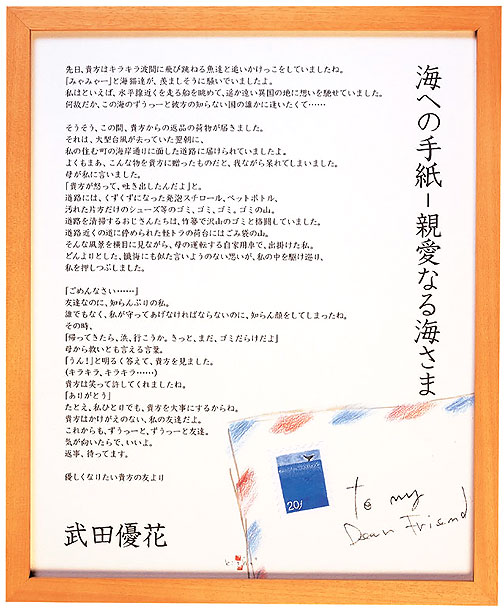 海への手紙－親愛なる海さま
先日、貴方はキラキラ波間に飛び跳ねる魚達と追いかけっこをしていましたね。
「みゃみゃー」と海猫達が、羨ましそうに騒いでいましたよ。
私はといえば、水平線近くを走る船を眺めて、遥か遠い異国の地に想いを馳せていました。
何故だか、この海のずうっーと彼方の知らない国の誰かに逢いたくて……
そうそう、この間、貴方からの返品の荷物が届きました。
それは、大型台風が去っていた翌朝に、
私の住む町の海岸通りに面した道路に届けられていましたよ。
よくもまあ、こんな物を貴方に贈ったものだと、我ながら呆れてしまいました。
母が私に言いました。
「貴方が怒って、吐き出したんだよ」と。
道路には、くずくずになった発泡スチロール、ペットボトル、
汚れた片方だけのシューズ等のゴミ、ゴミ、ゴミ、ゴミの山。
道路を清掃するおじさんたちは、竹箒で沢山のゴミと格闘していました。
道路近くの道に停められた軽トラの荷台にはごみ袋の山。
そんな風景を横目に見ながら、母の運転する自家用車で、出掛けた私。
どんよりとした、懺悔にも似た言いようのない思いが、私の中を駆け巡り、
私を押しつぶしました。
『ごめんなさい……』
友達なのに、知らんぷりの私。
誰でもなく、私が守ってあげなければならないのに、知らん顔をしてしまったね。
その時、
『帰ってきたら、浜、行こうか。きっと、まだ、ゴミだらけだよ』
母から救いとも言える言葉。
「うん！」と明るく答えて、貴方を見ました。
(キラキラ、キラキラ……)
貴方は笑って許してくれましたね。
『ありがとう』
たとえ、私ひとりでも、貴方を大事にするからね。
貴方はかけがえのない、私の友達だよ。
これからも、ずうっーと、ずうっーと友達。
気が向いたらで、いいよ。
返事、待ってます。
優しくなりたい貴方の友より
武田優花
20f
to my
Dear Friend